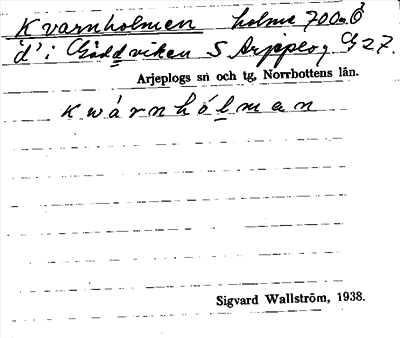 Kvarnholmen holme 700 m Ö
"d" i Gäddviken S Arjeplog G 27.
Arjeplogs sn och tg, Norrbottens län.
kwárnhólman
Sigvard Wallström, 1938.